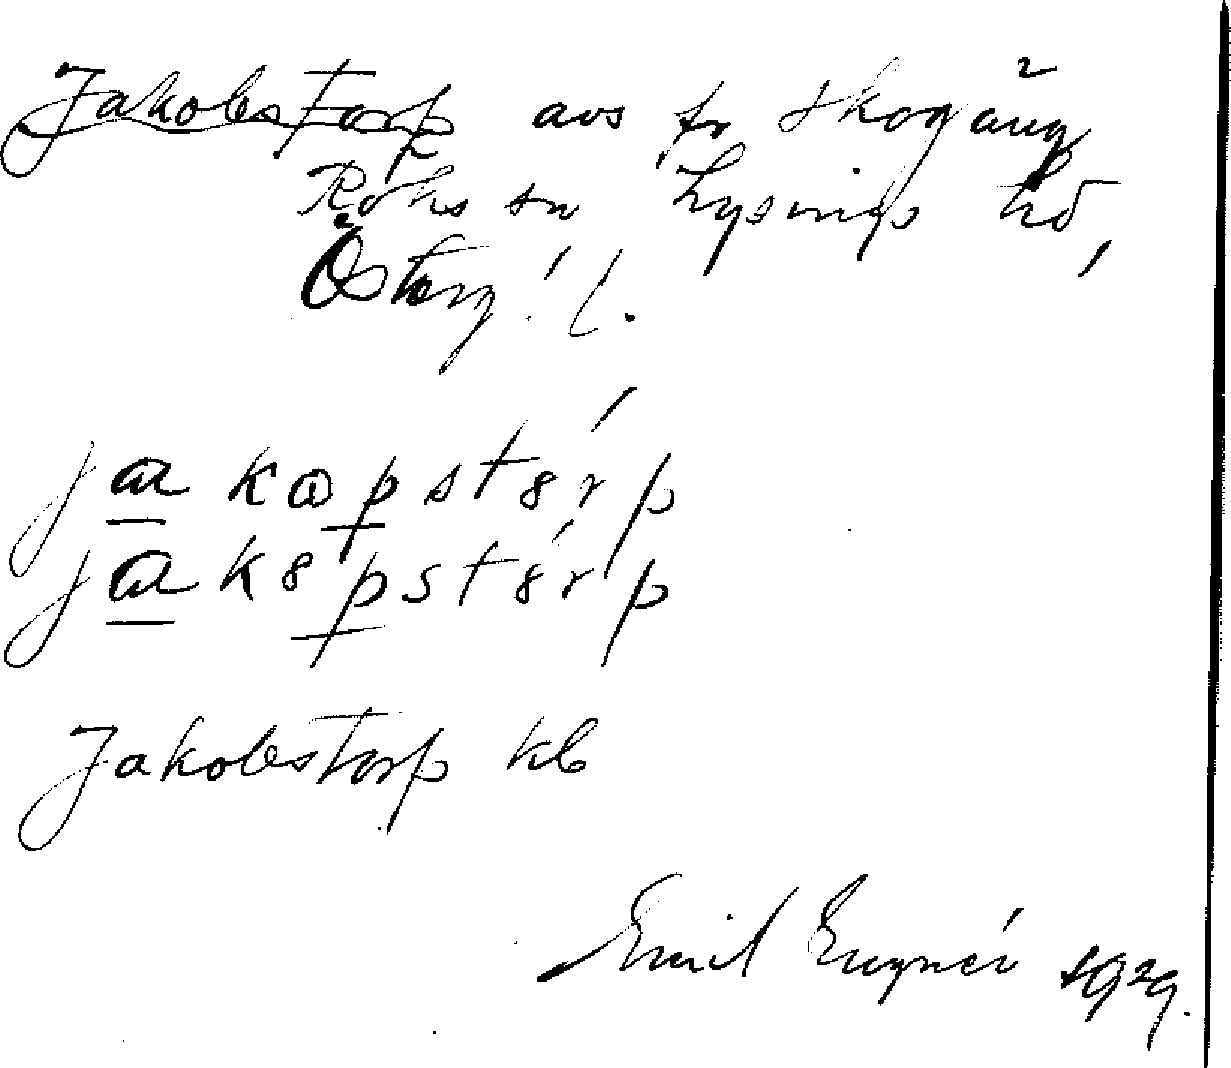 Jakobstorp avs fr Skogäng
Röks sn Lysings hd,
Österg! l.
jakopstórp
jak8pst8́rp
Jakobstorp kb
Emil 1929.